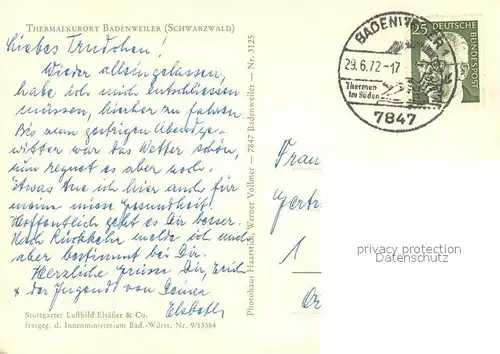 THERMALKURORT BADENWEILER (SCHWARZWALD)
Liebes Trudchen!
Wieder alleingelassen,
habe ich mich entschliessen
müssen, hierher zu fahren.
Bis zum gestrigen Abendge-
witter war das Wetter schön,
nun regnet es aber noch.
Etwas tue ich hier auch für
meine miese Gesundheit!
Hoffentlich geht es Dir besser.
Nach Rückkehr melde ich mich
aber bestimmt bei Dir.
Herzliche Grüsse Dir, Erich
& der Jugend von Deiner
Elsbeth
Stuttgarter Luftbild Elsäßer & Co.
freigeg. d. Innenministerium Bad.-Württ. Nr. 9/13384
Photohaus Haarstick, Werner Vollmer — 7847 Badenweiler — Nr. 3125
BADENWEILER
29.6.72-17
Thermen
im Süden
7847
25
DEUTSCHE
BUNDESPOST
Frau
Gertr
1
privacy protection
Datenschutz